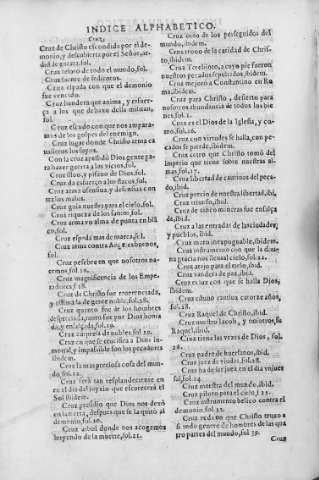 INDICE ALPHABETICO.
Cruz,
Cruz de Christo escondida por el de-
monio, y descubierta por el Señor,
Cruz tesoro de todo el mundo, fol.
Cruz fuente de
Cruz espada con que el demonio
fue vencido.
Cruz bandera que anima, y esfuer-
ça a los que debaxo della militan,
fol.
Cruz escudo con que nos ampara-
mos de los golpes del enemigo,
Cruz lugar donde Christo arma ca
ualleros los suyos.
Con la cruz apellidò Dios gente pa-
ra hazer guerra a los vicios, fol.
Cruz y pisano de Dios, fol.
Cruz da esfuerço a los flacos, fol.
Cruz arma ofensiua, y defensiua con
tra los malos.
Cruz guia nuestra para el cielo, fol.
Cruz riqueza de los santos, fol.
Cruz arma vn alma de punta en blã
co, fol.
Cruz espada mas de marca, fol.
Cruz arma contra
fol.
Cruz pesebre en que nosotros na-
cemos, fol. 20.
Cruz magnificencia de los Empe-
radores, f. 28.
Cruz de Christo fue reuerenciada,
y estimada de gente noble, fol. 28.
Cruz quanto fue de los hombres
despreciada, tanto fue por Dios honra
da, y ensalçada, fol. 29.
Cruz de nobles, fol. 20.
Cruz en que se crucifica a Dios in-
mortal, y impassible son los pecadores
ibidem.
Cruz la mas preciosa cosa del mun-
do, fol. 24.
Cruz serà tan resplandeciente en
en el dia del juyzio que escurecerà el
Sol ibidem.
Cruz presidio que Dios nos dexò
en la tierra, despues que se la quitò al
demonio, fol. 20.
Cruz arbol donde nos acogemos
huyendo de la muerte, fol. 21.
Cruz coto de los perseguidos del
mundo, ibidem.
Cruz trono de la caridad de Chris-
to, ibidem.
Cruz Terebinto, a cuyo pie fueron
nuestros pecados sepultados, ibidem.
Cruz mejorò a Constantino en Ro
ma, ibidem.
Cruz para Christo, desierto para
nosotros abundancia de todos los bie
nes, fol. 2.
Cruz es el Dios de la Iglesia, y co-
mo, fol.
Cruz con virtudes se halla, con pe-
cados se pierde, ibidem.
Cruz cetro que Christo tomò del
imperio que tenia sobre nuestras al-
mas, fol. 27.
Cruz libertad de cautiuos del peca-
do, ibid.
Cruz precio de nuestra libertad, ibi,
Cruz triunfo, ibid.
Cruz de cinco maneras fue ensalça
da, ibid.
Cruz a las entradas de las ciudades,
y pueblos, ibid.
Cruz muro inexpugnable, ibidem.
Cruz instrumento con que la diui-
na gracia nos lleua al cielo, fol. 22.
Cruz atajo para el cielo, ibid.
Cruz
Cruz es luz con que se halla Dios,
ibidem.
Cruz estuuo cautiua catorze años,
fol. 28.
Cruz Raquel de Christo, ibid.
Cruz nuestro Iacob, y nosotros su
Raquel, ibid.
Cruz tiene las vezes de Dios, fol.
28.
Cruz padre de huerfanos, ibid.
Cruz juez de viudas, fol. 28.
Cruz ha de ser juez en el dia del juyzio
fol. 24.
Cruz maestra del mundo, ibid.
Cruz piloto para el cielo, f. 25.
Cruz instrumento belico contra el
demonio, fol. 32.
Cruz red con que Christo truxo a
si todo genero de hombres de las qua
tro partes del mundo, fol. 39.
Cruz